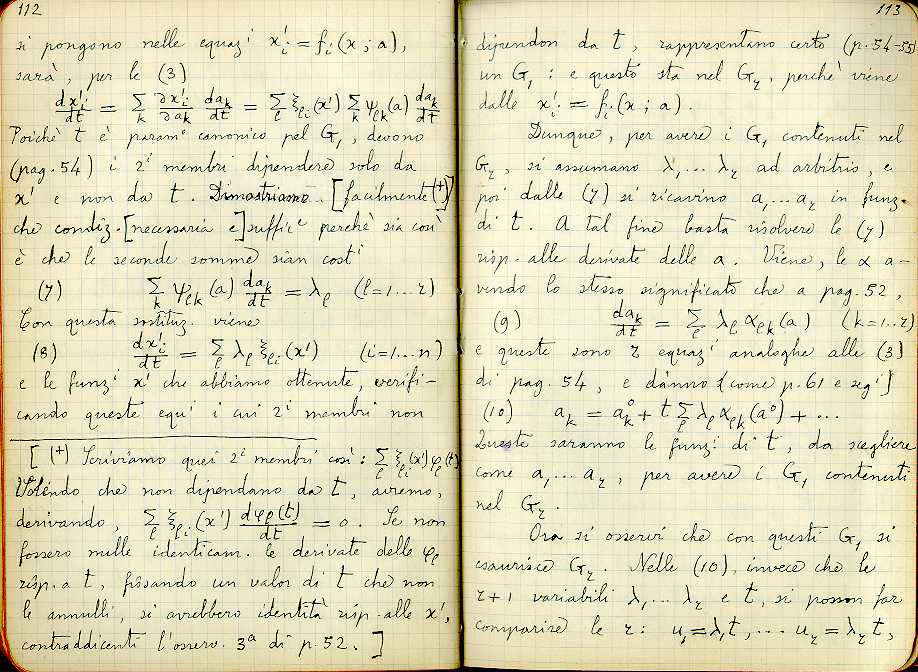 112
si pongono nelle equaz^i x'_i = f_i (x ; a),
sarà, per le (3)
dx'_i/dt = Σ_k ∂x'_i/∂a_k da_k/dt = Σ_ℓ ξ_ℓi (x') Σ_k ψ_ℓk (a) da_k/dt
Poichè t è param^e canonico pel G_1, devono
(pag. 54) i 2^i membri dipendere solo da
x' e non da t. Dimostriamo [facilmente (+)]
che condiz. [necessaria e] suffic^e perchè sia così
è che le seconde somme sian cost^i
(7) Σ_k ψ_ℓk (a) da_k/dt = λ_ℓ (ℓ = 1...r)
Con questa sostituz. viene
(8) dx'_i/dt = Σ_ℓ λ_ℓ ξ_ℓi (x') (i = 1...n)
e le funz^i x' che abbiamo ottenute, verifi-
cando queste equ^i i cui 2^i membri non
[(+) Scriviamo quei 2^i membri così: Σ_ℓ ξ_ℓi (x') φ_ℓ (t)
Volendo che non dipendano da t, avremo,
derivando, Σ_ℓ ξ_ℓi (x') dφ_ℓ(t)/dt = 0. Se non
fossero nulle identicam. le derivate delle φ_ℓ
risp. a t, fissando un valor di t che non
le annulli, si avrebbero identità risp. alle x',
contraddicenti l'osserv. 3^a di p. 52.]
113
dipendon da t, rappresentano certo (p. 54-55)
un G_1 : e questo sta nel G_r, perchè viene
dalle x'_i = f_i (x ; a).
Dunque, per avere i G_1 contenuti nel
G_r, si assumano λ_1... λ_r ad arbitrio, e
poi dalle (7) si ricavino a_1...a_r in funz.
di t. A tal fine basta risolvere le (7)
risp. alle derivate delle a. Viene, le α a-
vendo lo stesso significato che a pag. 52,
(9) da_k/dt = Σ_ℓ λ_ℓ α_ℓk (a) (k = 1..r)
e queste sono r equaz^i analoghe alle (3)
di pag. 54, e dànno [come p. 61 e seg^i]
(10) a_k = a_k^0 + t Σ_ℓ λ_ℓ α_ℓk (a^0) + ...
Queste saranno le funz^i di t, da scegliere
come a_1... a_r, per avere i G_1 contenuti
nel G_r.
Ora si osservi che con questi G_1 si
esaurisce G_r. Nelle (10), invece che le
r+1 variabili λ_1... λ_r e t, si posson far
comparire le r: u_1 = λ_1 t, ... u_r = λ_r t,